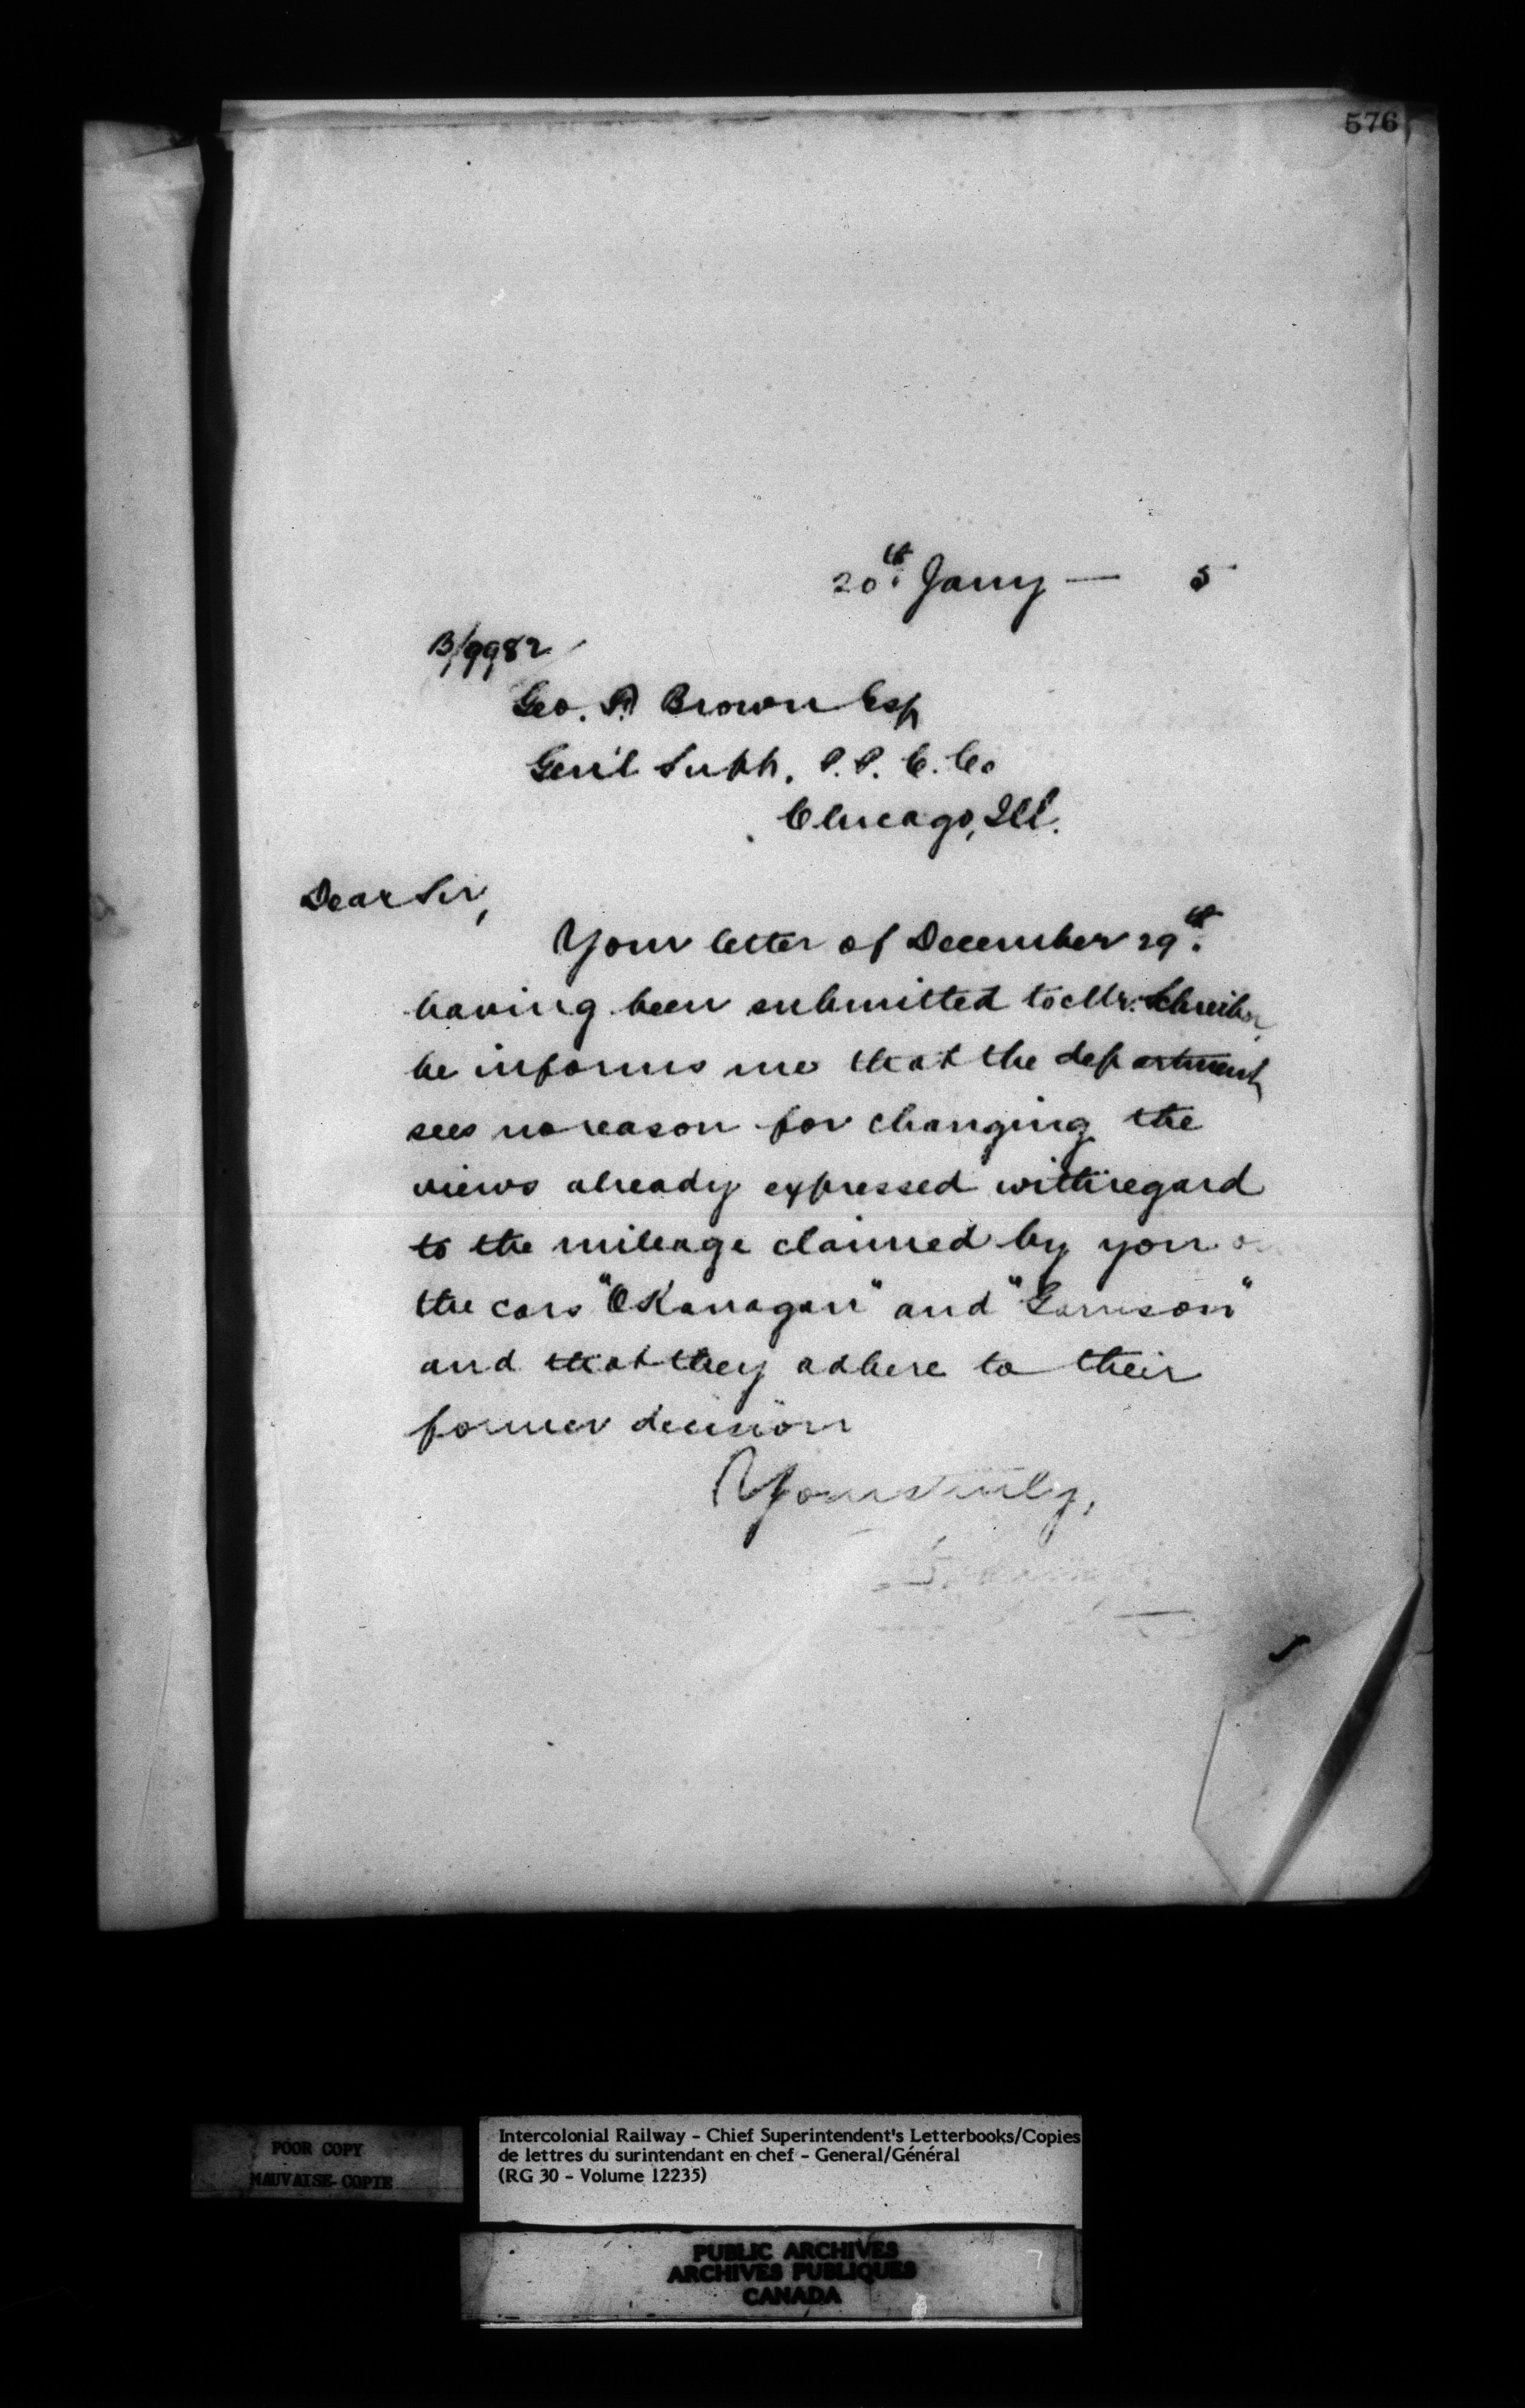 576
20th Jany — 5
B/9982
Geo. A Brown Esq
Gen'l Supt. P. P. C. Co
Chicago, Ill.
Dear Sir,
Your letter of December 29th
having been submitted to Mr. Schreiber
he informs me that the department
sees no reason for changing the
views already expressed with regard
to the mileage claimed by you on
the cars "Okanagan" and "Garrison"
and that they adhere to their
former decision
Yours truly,
POOR COPY
MAUVAISE COPIE
Intercolonial Railway - Chief Superintendent's Letterbooks/Copies
de lettres du surintendant en chef - General/Général
(RG 30 - Volume 12235)
PUBLIC ARCHIVES
ARCHIVES PUBLIQUES
CANADA